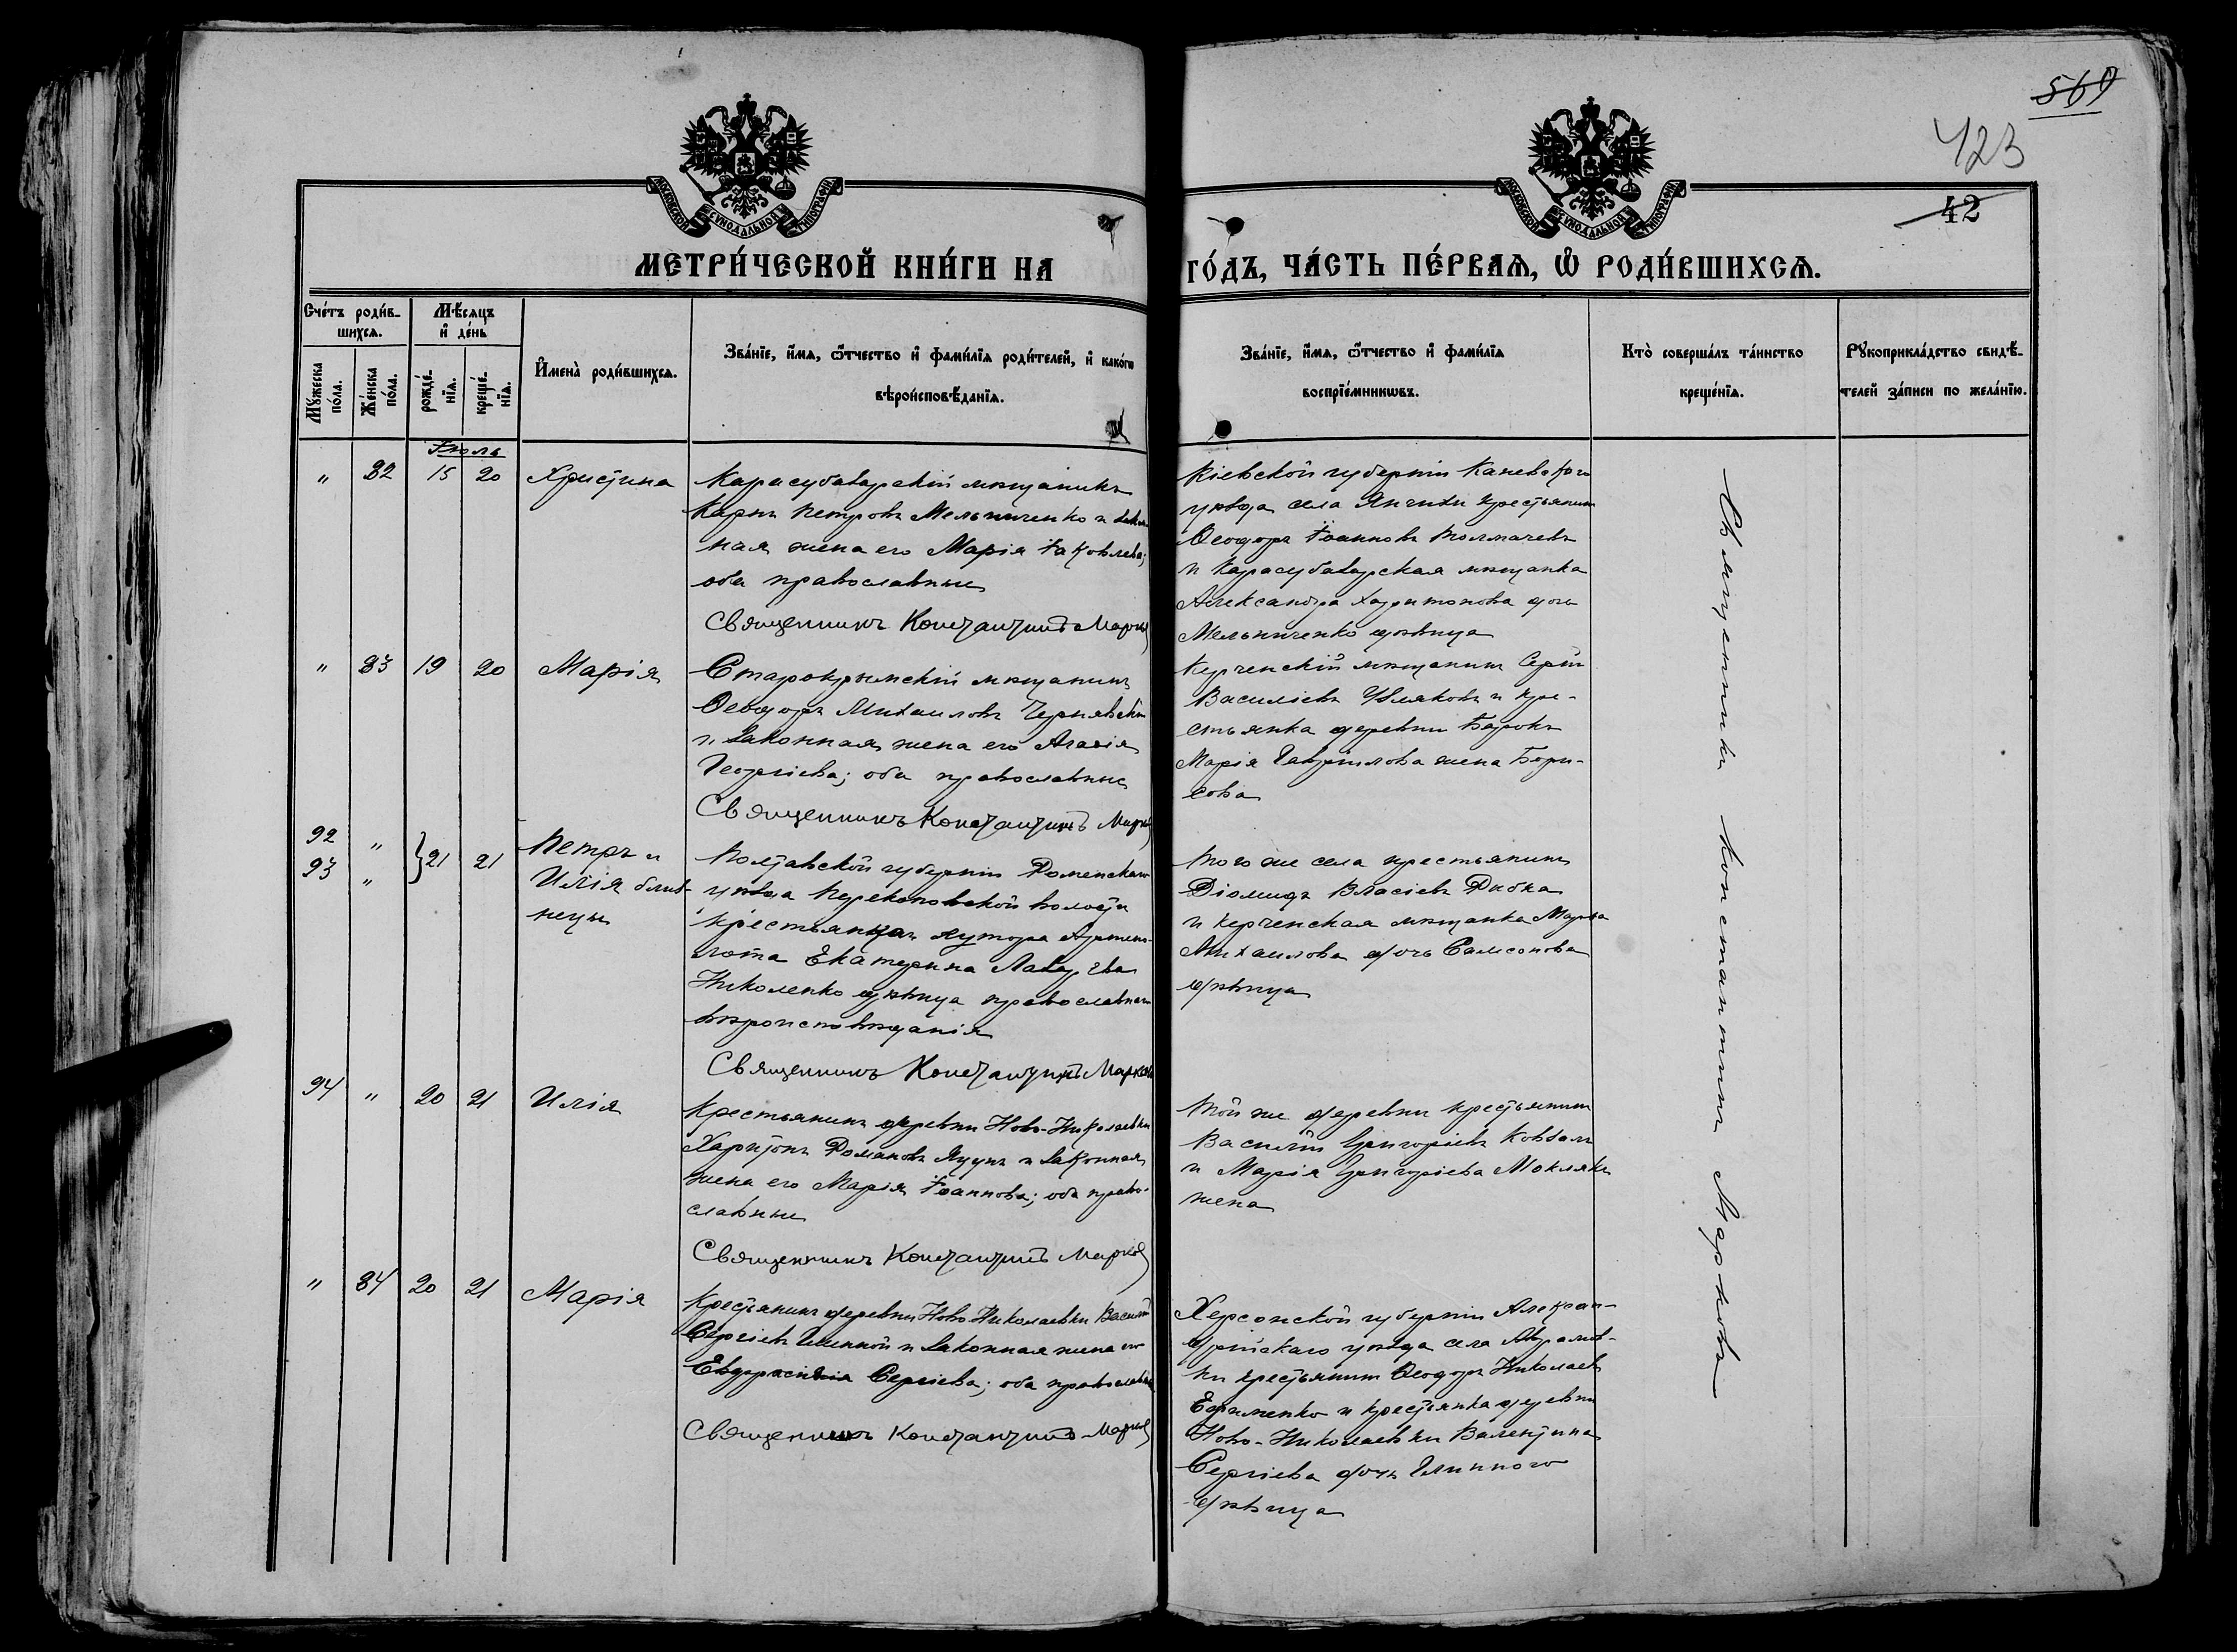 569
423
42
МОСКОВСКОЙ СУНОДАЛЬНОЙ ТИПОГРАФІИ
МОСКОВСКОЙ СУНОДАЛЬНОЙ ТИПОГРАФІИ
МЕТРИ́ЧЕСКОЙ КНИ́ГИ НА
ГО́ДЪ, ЧА́СТЬ ПЕ́РВАѦ, Ѡ҆ РОДИ́ВШИХСѦ.
Сче́тъ роди́в-
шихсѧ.
Мꙋ́жеска
по́ла.
Же́нска
по́ла.
Мѣ́сѧцъ
и҆ де́нь
рожде́-
нїѧ.
креще́-
нїѧ.
И҆мена̀ роди́вшихсѧ.
Зва́нїе, и҆́мѧ, ѻ҆́тчество и҆ фами́лїѧ роди́телей, и҆ како́гѡ
вѣроисповѣ́данїѧ.
Зва́нїе, и҆́мѧ, ѻ҆́тчество и҆ фами́лїѧ
воспрїе́мникѡвъ.
Кто̀ соверша́лъ та́инство
креще́нїѧ.
Рꙋкоприкла́дство свидѣ́-
телей за́писи по жела́нїю.
Іюль
" 82 15 20 Христина
Карасубазарскій мѣщанинъ
Карпъ Петровъ Мельниченко и закон-
ная жена его Марія Іаковлева;
оба православные
Священникъ Константинъ Марковъ
Кіевской губерніи Каневскаго
уѣзда села крестьянинъ
Ѳеодоръ Іоанновъ Толмачевъ
и Карасубазарская мѣщанка
Александра Харитонова дочь
Мельниченко дѣвица
" 83 19 20 Марія
Старокрымскій мѣщанинъ
Ѳеодоръ Михаиловъ Чернявскій
и законная жена его Агаѳія
Георгіева; оба православные
Священникъ Константинъ Марковъ
Керченскій мѣщанинъ Сергій
Василіевъ и кре-
стьянка деревни
Марія Гавриилова жена Бори-
сова
92 "
93 " } 21 21 Петръ и
Илія близ-
нецы
Полтавской губерніи Роменскаго
уѣзда Перекоповской волости
крестьянка хутора
Екатерина
Николенко дѣвица православнаго
вѣроисповѣданія
Священникъ Константинъ Марковъ
Того же села крестьянинъ
Діомидъ Власіевъ
и Керченская мѣщанка Марѳа
Михаилова дочь Самсонова
дѣвица
94 " 20 21 Илія
Крестьянинъ деревни Ново-Николаевки
Харитонъ Романовъ и законная
жена его Марія Іоаннова; оба право-
славные
Священникъ Константинъ Марковъ
Той же деревни крестьянинъ
Василій Григоріевъ Коваль
и Марія Григоріева
жена
" 84 20 21 Марія
Крестьянинъ деревни Ново-Николаевки Василій
Сергіевъ и законная жена его
Сергіева; оба православные
Священникъ Константинъ Марковъ
Херсонской губерніи Алексан-
дрійскаго уѣзда села
крестьянинъ Ѳеодоръ Николаевъ
Ефименко и крестьянка деревни
Ново-Николаевки Валентина
Сергіева дочь
дѣвица
Священникъ Константинъ Марковъ